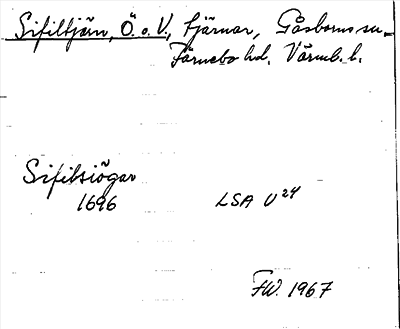 Sifiltjärn, Ö. o. V., tjärnar, Gåsborns sn.
Färnebo hd. Värml. l.
Sifilsiögar
1696
LSA U 24
FW. 1967